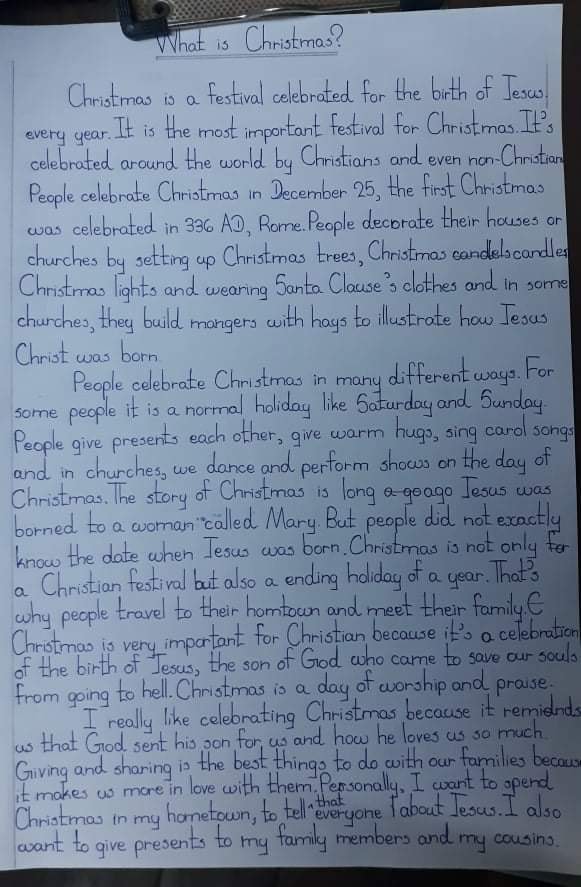 What is Christmas?
Christmas is a festival celebrated for the birth of Jesus
every year. It is the most important festival for Christmas. It's
celebrated around the world by Christians and even non-Christian
People celebrate Christmas in December 25, the first Christmas
was celebrated in 336 AD, Rome. People decorate their houses or
churches by setting up Christmas trees, Christmas candels candles
Christmas lights and wearing Santa Clause's clothes and in some
churches, they build mangers with hays to illustrate how Jesus
Christ was born.
People celebrate Christmas in many different ways. For
some people it is a normal holiday like Saturday and Sunday.
People give presents each other, give warm hugs, sing carol songs
and in churches, we dance and perform shows on the day of
Christmas. The story of Christmas is long a goago Jesus was
borned to a woman "called Mary. But people did not exactly
know the date when Jesus was born. Christmas is not only for
a Christian festival but also a ending holiday of a year. That's
why people travel to their homtown and meet their family. C
Christmas is very important for Christian because it's a celebration
of the birth of Jesus, the son of God who came to save our souls
from going to hell. Christmas is a day of worship and praise.
I really like celebrating Christmas because it remiends
us that God sent his son for us and how he loves us so much.
Giving and sharing is the best things to do with our families because
it makes us more in love with them. Personally, I want to spend
Christmas in my hometown, to tell that everyone about Jesus. I also
want to give presents to my family members and my cousins.